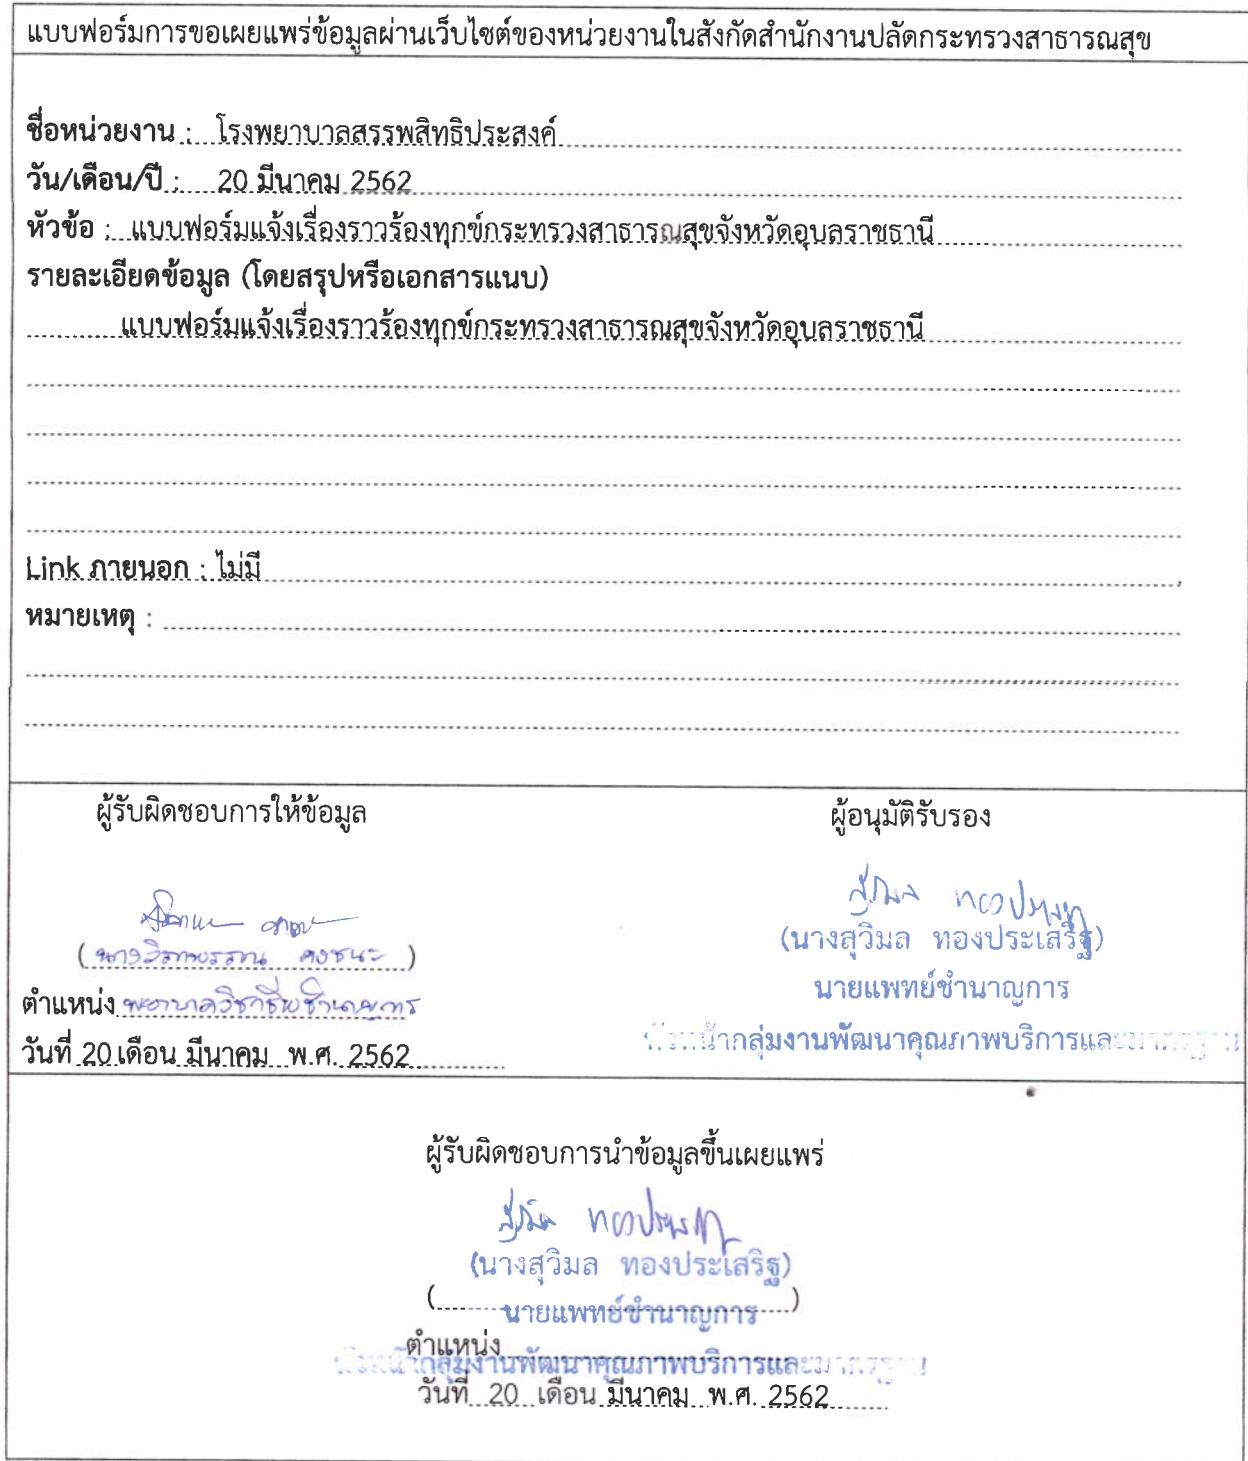 แบบฟอร์มการขอเผยแพร่ข้อมูลผ่านเว็บไซต์ของหน่วยงานในสังกัดสำนักงานปลัดกระทรวงสาธารณสุข
ชื่อหน่วยงาน : โรงพยาบาลสรรพสิทธิประสงค์
วัน/เดือน/ปี : 20 มีนาคม 2562
หัวข้อ : แบบฟอร์มแจ้งเรื่องราวร้องทุกข์กระทรวงสาธารณสุขจังหวัดอุบลราชธานี
รายละเอียดข้อมูล (โดยสรุปหรือเอกสารแนบ)
แบบฟอร์มแจ้งเรื่องราวร้องทุกข์กระทรวงสาธารณสุขจังหวัดอุบลราชธานี
Link ภายนอก : ไม่มี
หมายเหตุ :
ผู้รับผิดชอบการให้ข้อมูล
(นาง)
ตำแหน่ง พยาบาลวิชาชีพชำนาญการ
วันที่ 20 เดือน มีนาคม พ.ศ. 2562
ผู้อนุมัติรับรอง
สุวิมล ทองประเสริฐ
(นางสุวิมล ทองประเสริฐ)
นายแพทย์ชำนาญการ
หัวหน้ากลุ่มงานพัฒนาคุณภาพบริการและมาตรฐาน
ผู้รับผิดชอบการนำข้อมูลขึ้นเผยแพร่
สุวิมล ทองประเสริฐ
(นางสุวิมล ทองประเสริฐ)
(นายแพทย์ชำนาญการ)
ตำแหน่ง
หัวหน้ากลุ่มงานพัฒนาคุณภาพบริการและมาตรฐาน
วันที่ 20 เดือน มีนาคม พ.ศ. 2562